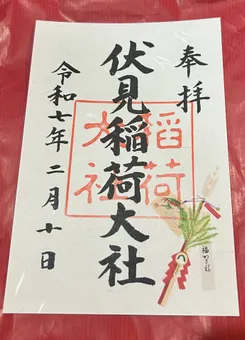 奉拝
伏見稲荷大社
稲荷
大社
令和七年二月十日